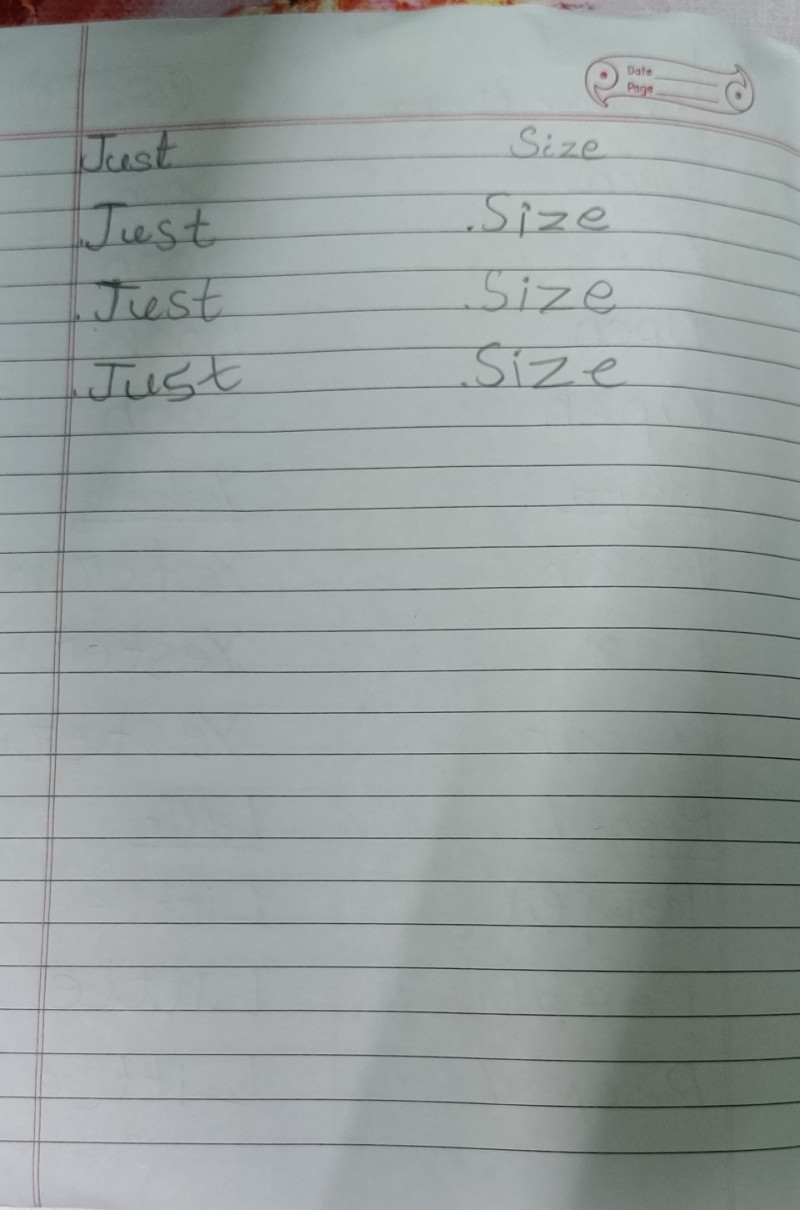 Date
Page
Just Size
.Just .Size
.Just .Size
.Just .Size